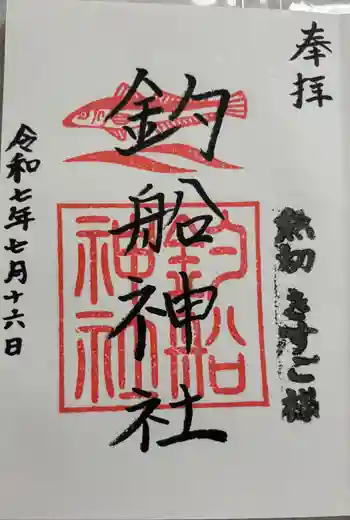 奉拝
釣船神社
釣船
神社
きすご様
令和七年七月十六日